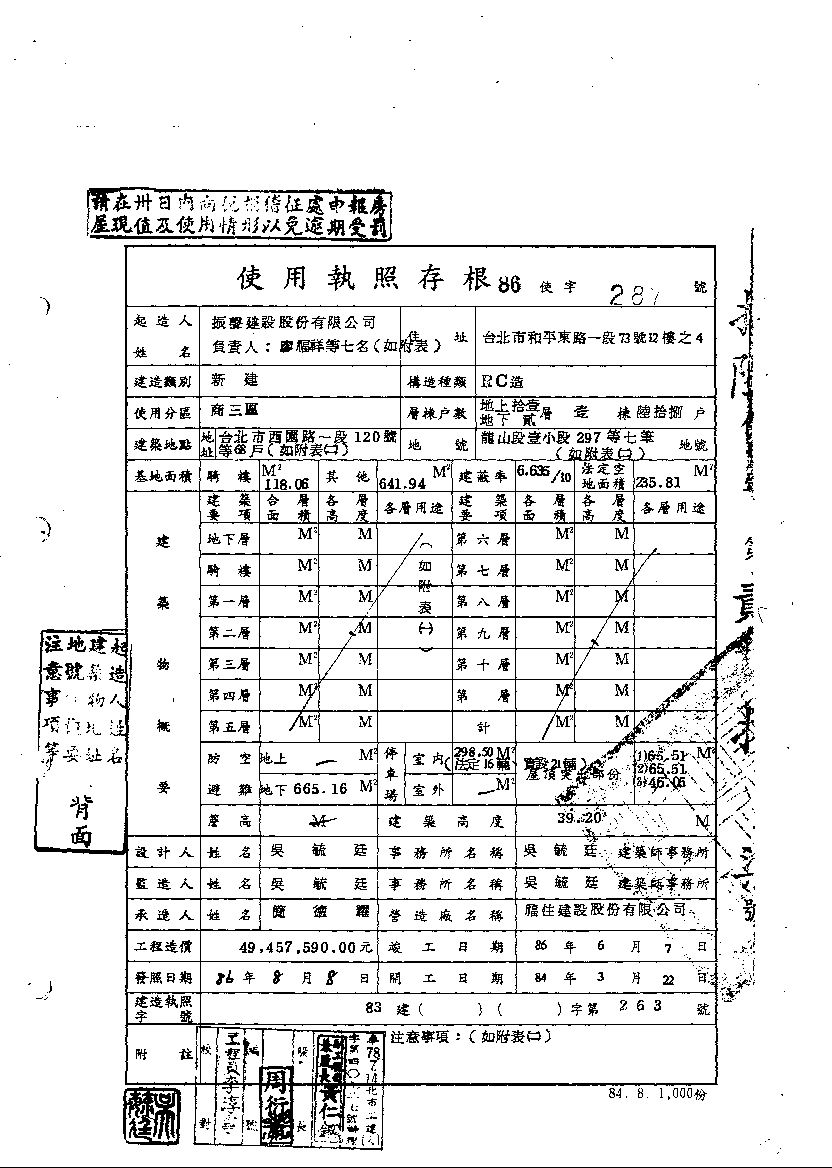 請在卅日內向稅捐稽征處申報房
屋現值及使用情形以免逾期受罰
使用執照存根 86 使字 287 號
起造人 姓名 振聲建設股份有限公司 住址 台北市和平東路一段73號12樓之4
負責人：廖福祥等七名(如附表)
建造類別 新建 構造種類 RC造
使用分區 商三區 層棟戶數 地上拾壹層 地下貳 壹棟 陸拾捌戶
建築地點 地址 台北市西園路一段120號 地號 龍山段壹小段297等七筆 地號
等68戶(如附表㈡) (如附表㈡)
基地面積 騎樓 M² 118.06 其他 641.94 M² 建蔽率 6.635/10 法定空地面積 235.81 M²
建築物概要 建築要項 合層面積 各層高度 各層用途 建築要項 各層面積 各層高度 各層用途
地下層 M² M (如附表㈠) 第六層 M² M
騎樓 M² M 第七層 M² M
第一層 M² M 第八層 M² M
第二層 M² M 第九層 M² M
第三層 M² M 第十層 M² M
第四層 M² M 第層 M² M
第五層 M² M 計 M² M
防空避難 地上 — M² 停車場 室內 298.50 M² (法定16輛、實設21輛) 屋頂突出部份 (1)65.51 M²
(2)65.51
地下 665.16 M² 室外 — M² (3)46.05
簷高 M 建築高度 39.20 M
設計人 姓名 吳毓廷 事務所名稱 吳毓廷 建築師事務所
監造人 姓名 吳毓廷 事務所名稱 吳毓廷 建築師事務所
承造人 姓名 簡德耀 營造廠名稱 福住建設股份有限公司
工程造價 49,457,590.00元 竣工日期 86年6月7日
發照日期 86年8月8日 開工日期 84年3月22日
建造執照字號 83建( )( )字第263號
附註 注意事項：(如附表㈡)
84. 8. 1,000份
起造人姓名
建築物地址
地號
注意事項等
背面
校對
周衍
黃仁